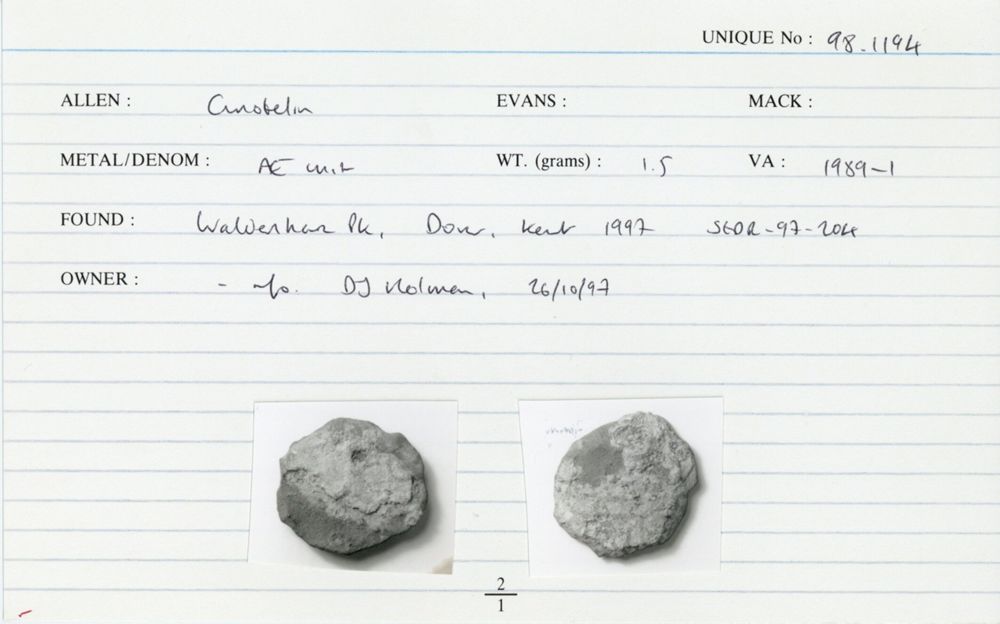 UNIQUE No : 98.1194
ALLEN : Cunobelin EVANS : MACK :
METAL/DENOM : AE unit WT. (grams) : 1.5 VA : 1989-1
FOUND : Waldershare Pk, Dover, Kent 1997 SEDR-97-204
OWNER : - DJ Holman, 26/10/97
2
1